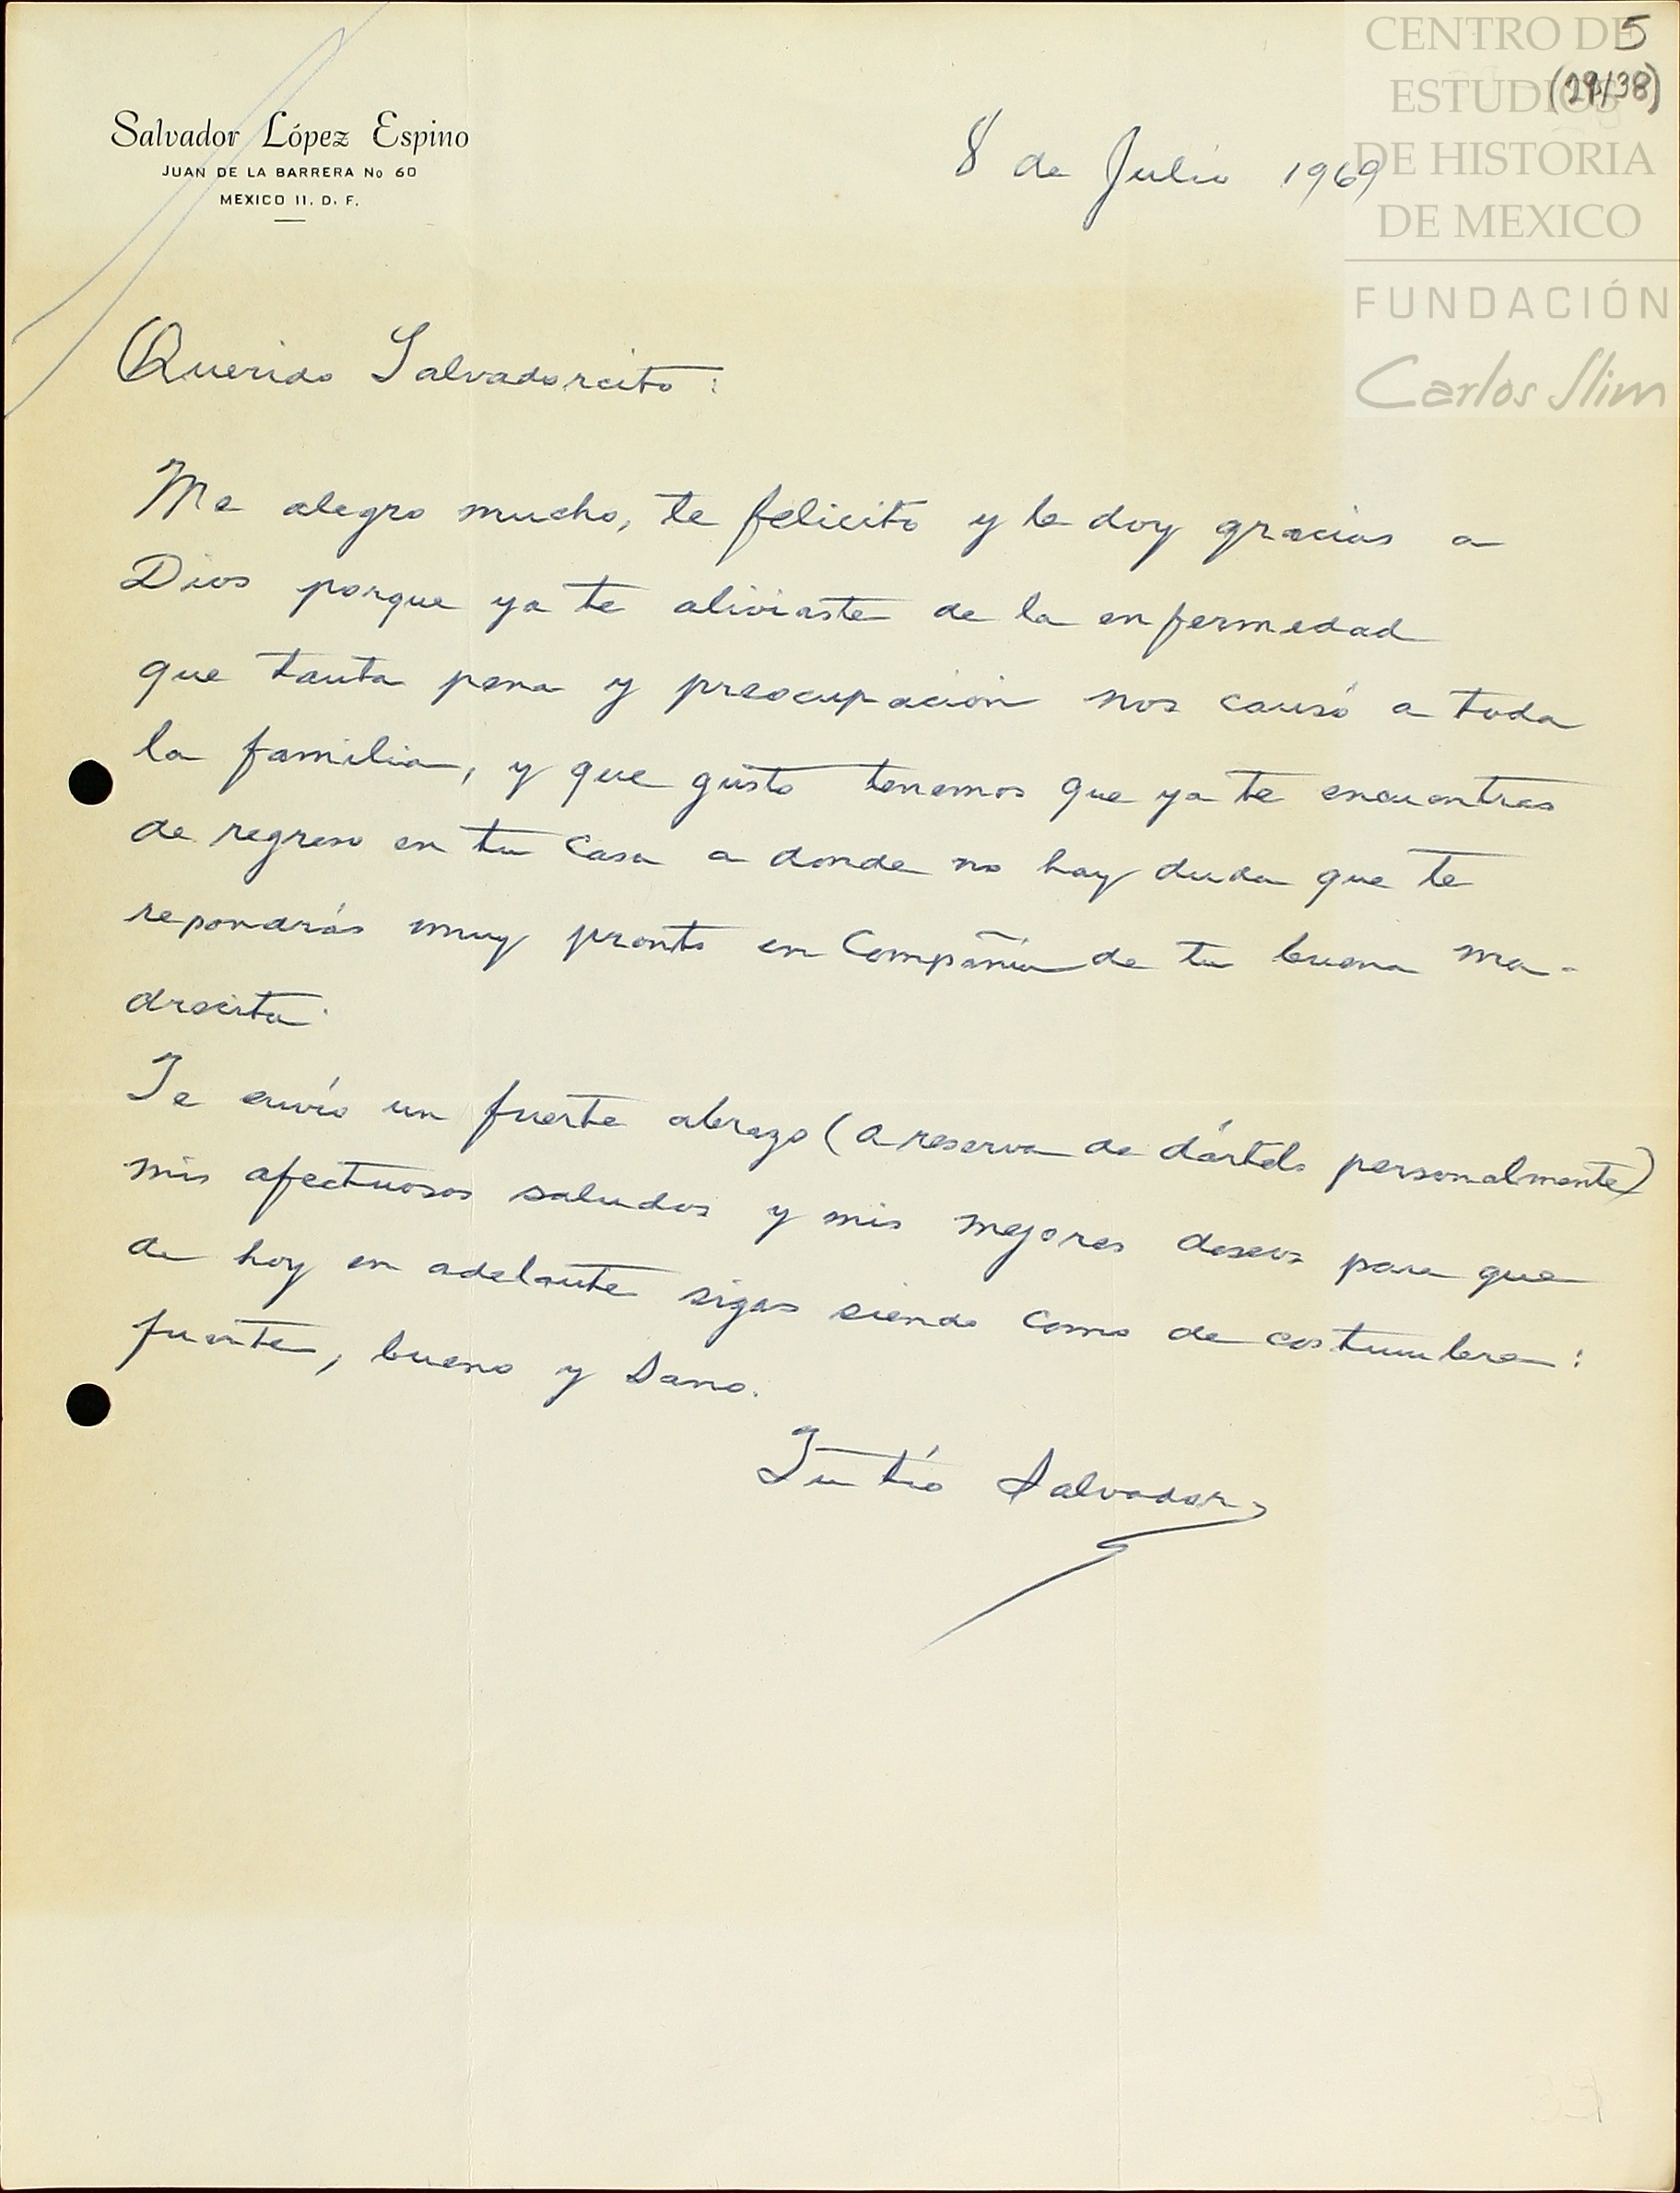 5
(29/38)
CENTRO DE
ESTUDIOS
DE HISTORIA
DE MEXICO
FUNDACIÓN
Carlos Slim
Salvador López Espino
JUAN DE LA BARRERA No 60
MEXICO 11, D. F.
8 de Julio 1969
Querido Salvadorcito:
Me alegro mucho, te felicito y le doy gracias a
Dios porque ya te aliviaste de la enfermedad
que tanta pena y preocupación nos causó a toda
la familia, y que gusto tenemos que ya te encuentras
de regreso en tu casa a donde no hay duda que te
repondrás muy pronto en Compañía de tu buena ma-
drecita.
Te envío un fuerte abrazo (a reserva de dártelo personalmente)
mis afectuosos saludos y mis mejores deseos para que
de hoy en adelante sigas siendo como de costumbre:
fuerte, bueno y sano.
Tu tío Salvador